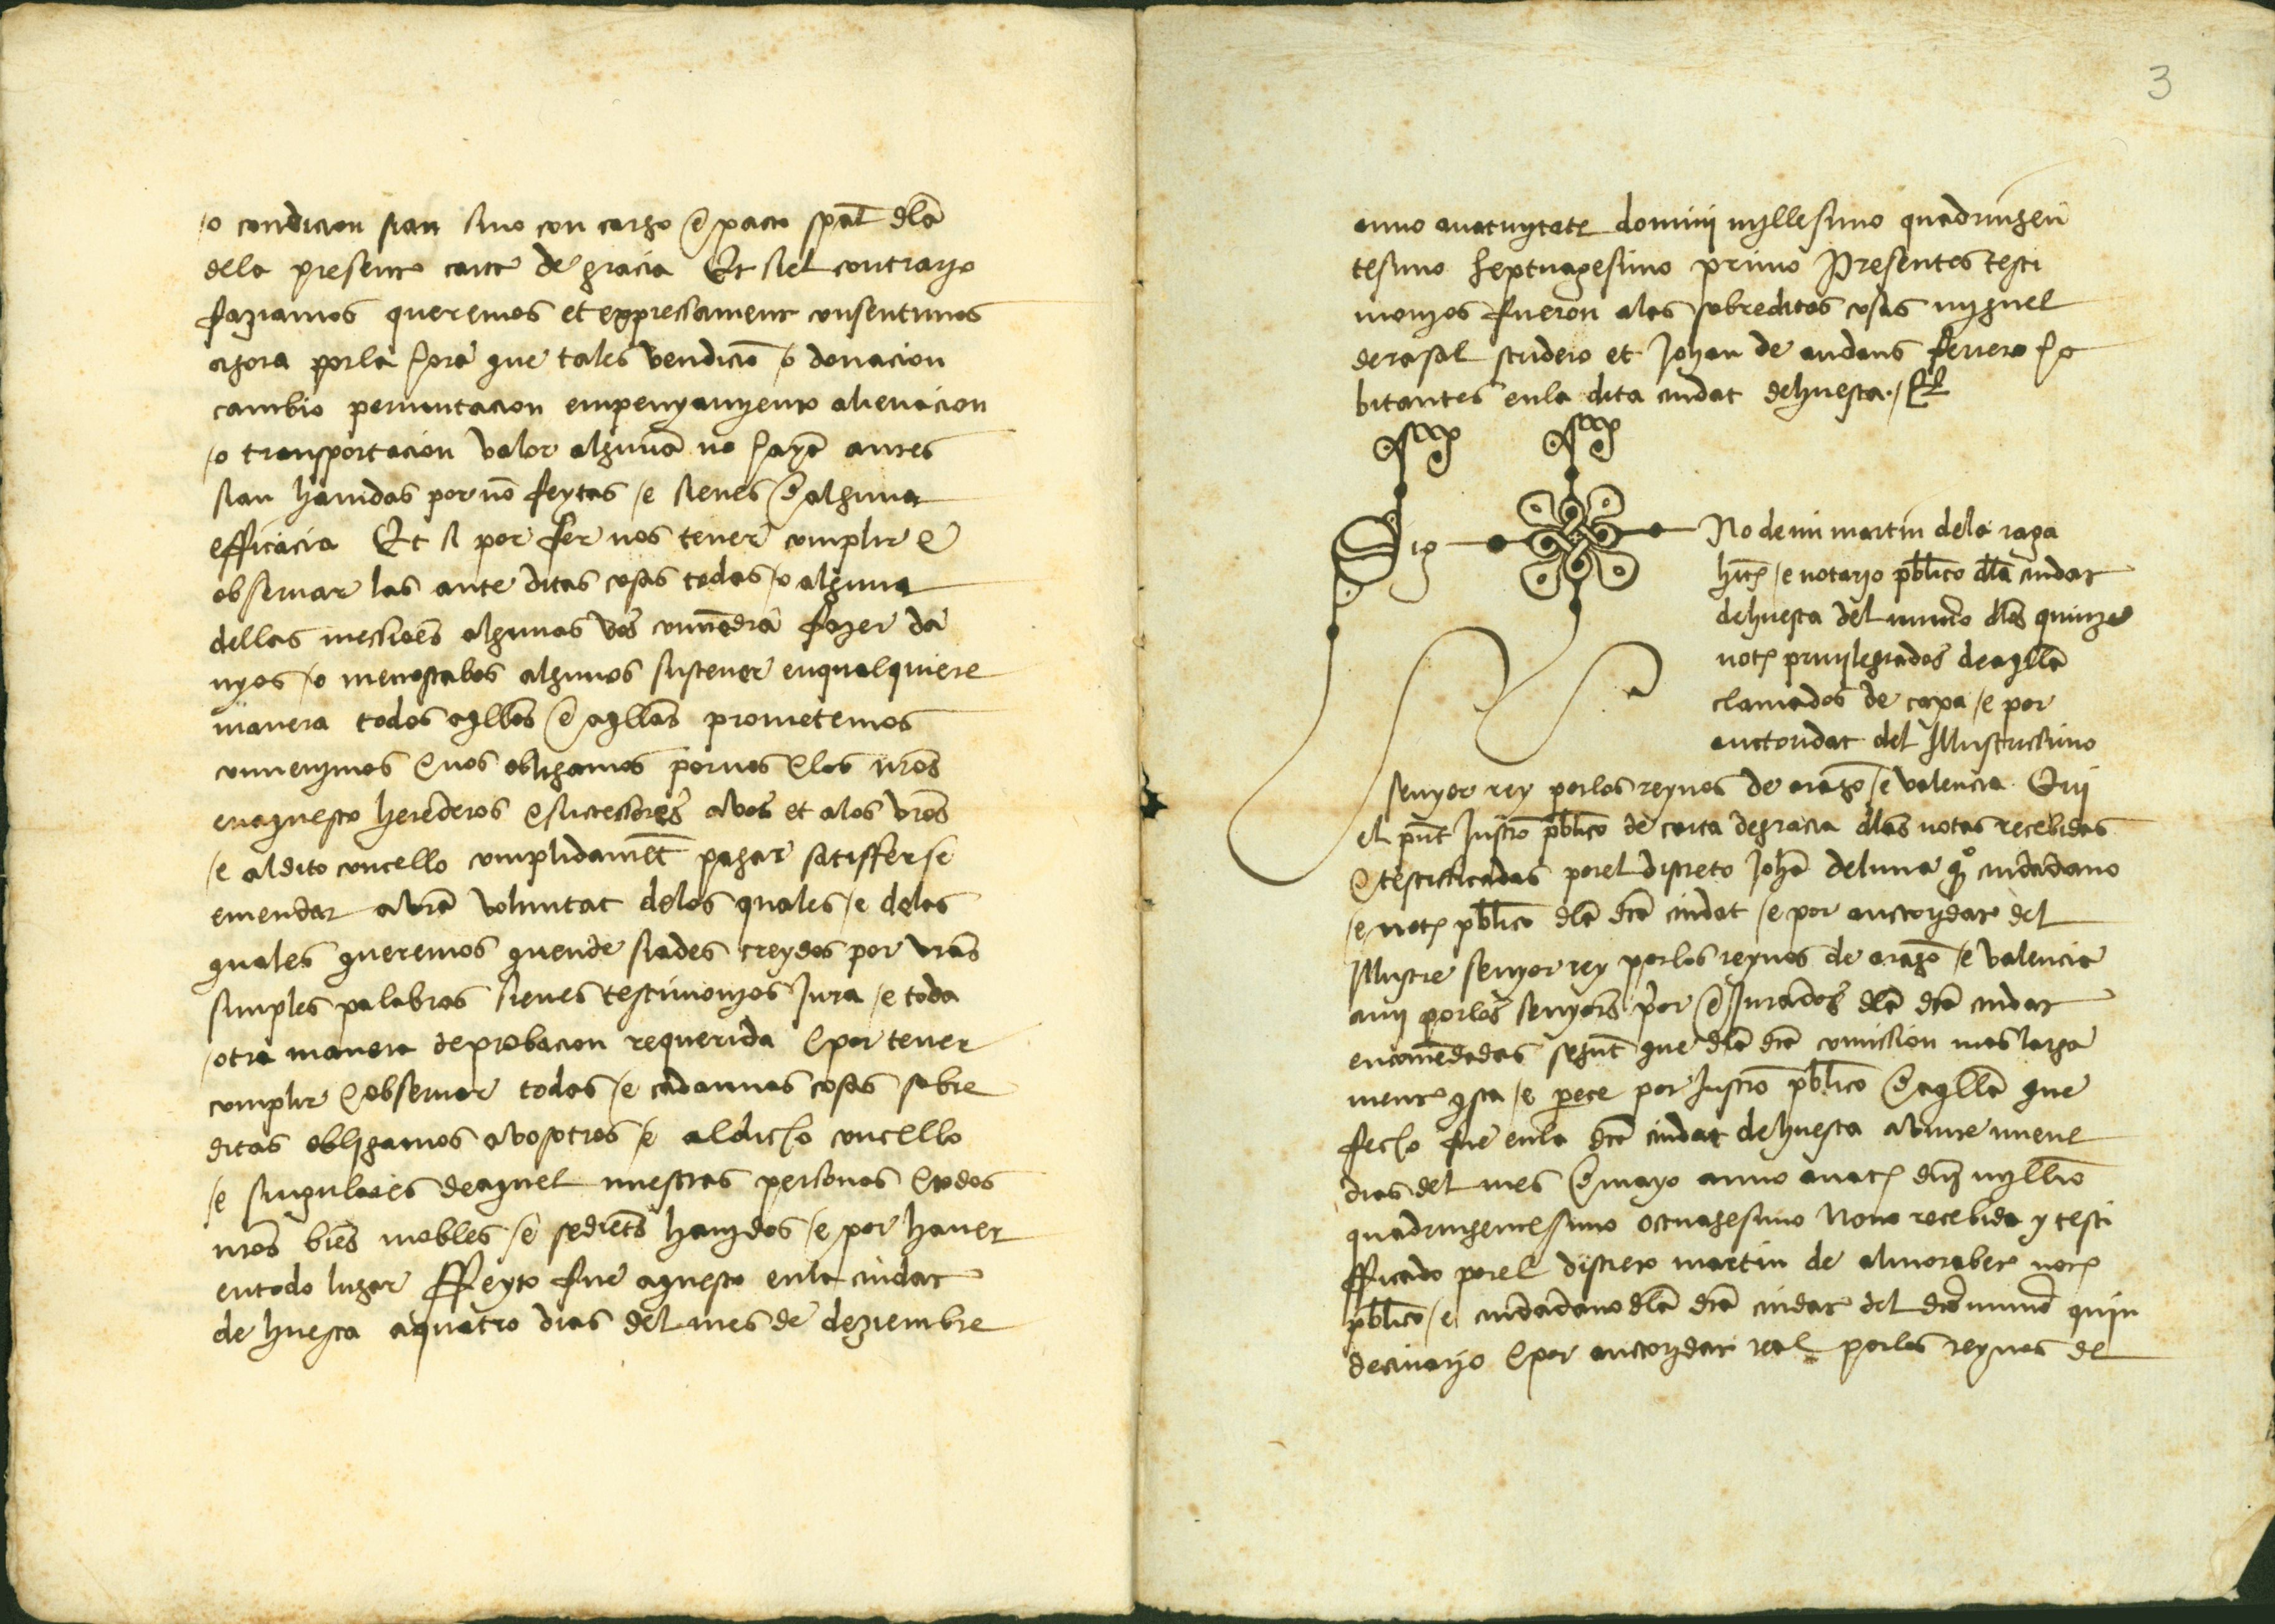 o condicion sian sino con cargo e pacto spāl dla
dela present cart de gracia Et si el contrayo
faziamos queremos et expressament consentimos
agora por la hora que tales vendiciō o donacion
cambio permutacion empenyamyento alienacion
o transportacion valor alguna no haya antes
sian havidas por nō feytas e sienes de alguna
efficacia Et si por fer nos tener complir e
observar las ante ditas cosas todas o alguna
dellas messioēs algunas vos convēdra fazer da
nyos o menoscabos algunos sustener en qualquiere
manera todos aqllos e aqllas prometemos
convenymos e nos obligamos por nos e los nrōs
en aquesto herederos e successores a vos et a los vrōs
e al dito concello complidamēt pagar satisffer e
emendar a vrā voluntat delos quales e delas
quales queremos quende siades creydos por vrās
simples palabras sienes testimonyos jura e toda
otra manera de probacion requerida e por tener
complir e observar todas e cadaunas cosas sobre
ditas obligamos a vosotros e al dicho concello
e singulares de aquel nuestras personas e todos
nrōs biēs mobles e sediēts havydos e por haver
en todo lugar Ffeyto fue aquesto en la ciudat
de huesca a quatro dias del mes de deziembre
3
anno anatuytate dominij myllesimo quadringen
tesimo septuagesimo primo Presentes testi
monyos fueron alas sobreditas cosas myguel
de rasal scudero et Johan de andans ferrero ha
bitantes en la dita ciudat de huesca
Sig No de mi martin dela raga
hāt e notayo pblico dla ciudat
de huesca del numō dlos quinze
not privylegiados de aqlla
clamados de capa e por
auctoridat del Illustrissimo
senyor rey por los reynos de aragō e valencia Qui
el pnt Instrō pblico de carta de gracia dlas notas recebidas
e testifficadas por el discreto Johā de luna qō ciudadano
e not pblico dla dca ciudat e por auctorydat del
Illustre senyor rey por los reynos de aragō e valencia
a mj por los senyors pior e jurados dla dca ciudat
encomēdadas segunt que dla dca comission mas larga
ment qsta e parece por Instrō pblico de aqlla que
fecho fue en la dca ciudat de huesca a vinte nueve
dias del mes de mayo anno anat dnj myllīo
quadringentesimo octuagesimo Nono recebido y testi
fficado por el discreto martin de almorabet not
pblico e ciudadano dla dca ciudat del dco numō quin
decinayo e por auctorydat real por los reynos de